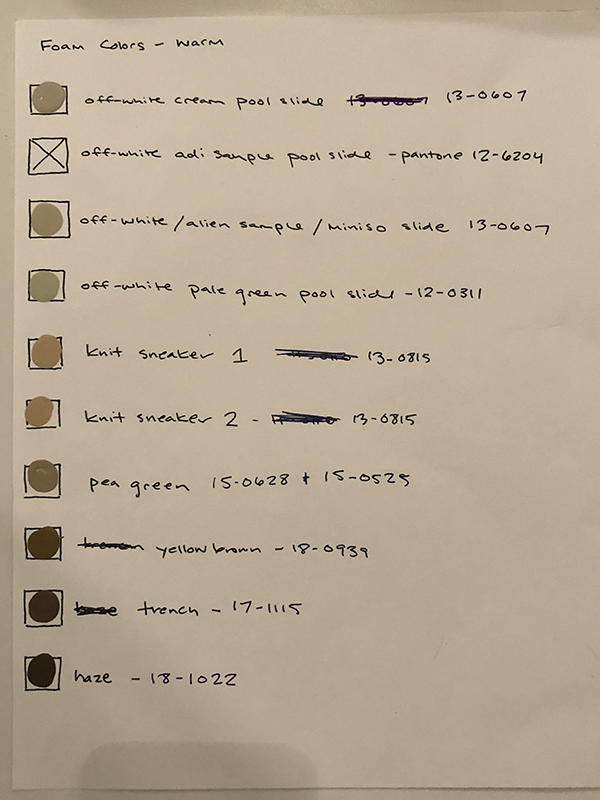 Foam Colors - Warm
off-white cream pool slide 13-0607 13-0607
off-white adi sample pool slide - pantone 12-6204
off-white/alien sample/miniso slide 13-0607
off-white pale green pool slide - 12-0311
knit sneaker 1 13-0815
knit sneaker 2 - 13-0815
pea green 15-0628 + 15-0525
trench yellow brown - 18-0939
haze trench - 17-1115
haze - 18-1022